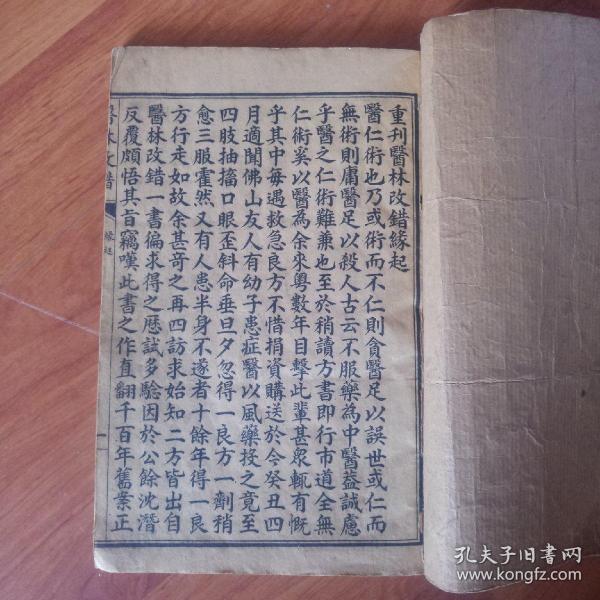 重刊醫林改錯緣起
醫仁術也乃或術而不仁則貪醫足以誤世或仁而
無術則庸醫足以殺人古云不服藥為中醫蓋誠慮
乎醫之仁術難兼也至於稍讀方書即行市道全無
仁術奚以醫為余來粵數年目擊此輩甚衆輒有慨
乎其中每遇救急良方不惜捐資購送於今癸丑四
月適聞佛山友人有幼子患症醫以風藥投之竟至
四肢抽搐口眼歪斜命垂旦夕忽得一良方一劑稍
愈三服霍然又有人患半身不遂者十餘年得一良
方行走如故余甚奇之再四訪求始知二方皆出自
醫林改錯一書徧求得之歷試多驗因於公餘沈潛
反覆頗悟其旨竊嘆此書之作直翻千百年舊案正
醫林改錯
緣起
一
孔夫子旧书网
www.kongfz.com